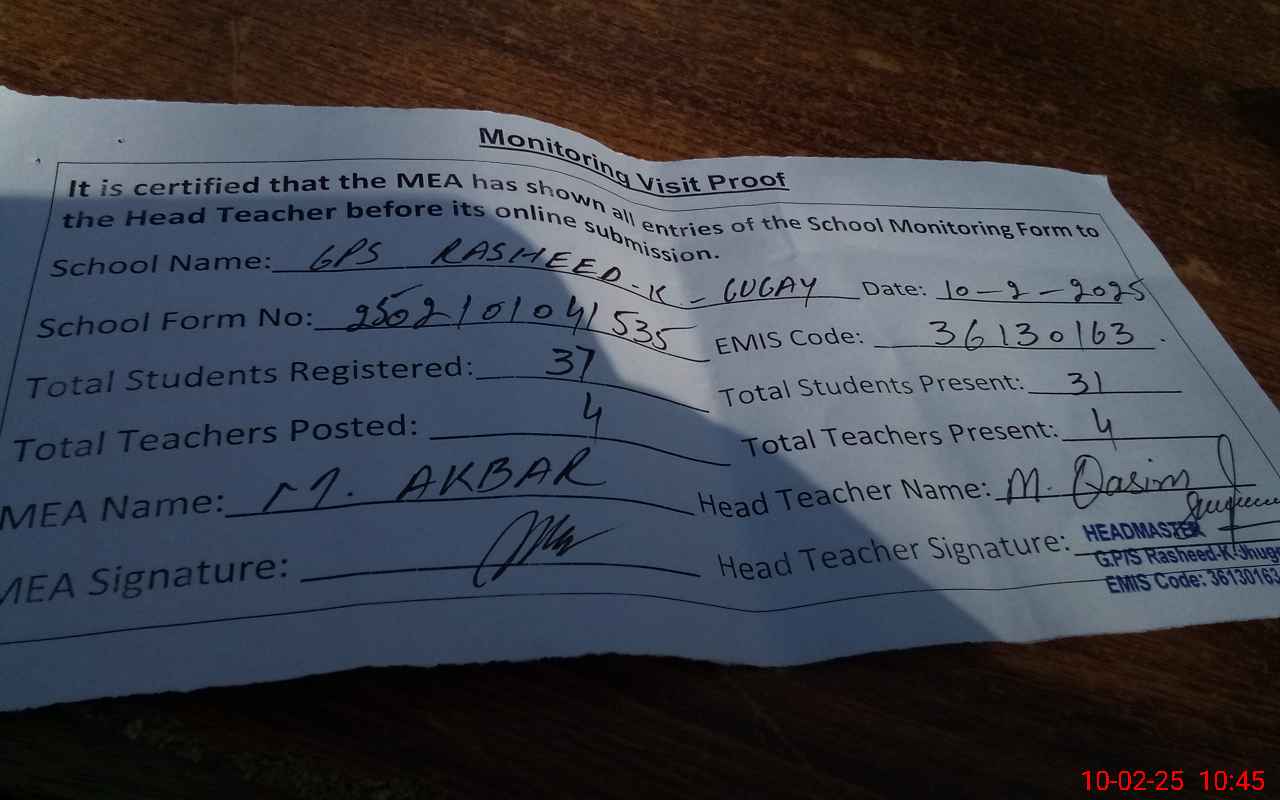 Monitoring Visit Proof
It is certified that the MEA has shown all entries of the School Monitoring Form to
the Head Teacher before its online submission.
School Name: GPS RASHEED-K-GUGAY Date: 10-2-2025
School Form No: 2502101041535 EMIS Code: 36130163
Total Students Registered: 37 Total Students Present: 31
Total Teachers Posted: 4 Total Teachers Present: 4
MEA Name: M. AKBAR Head Teacher Name: M. Qasim
MEA Signature: Head Teacher Signature:
HEADMASTER
G.P/S Rasheed-K-Jhug
EMIS Code: 36130163
10-02-25 10:45